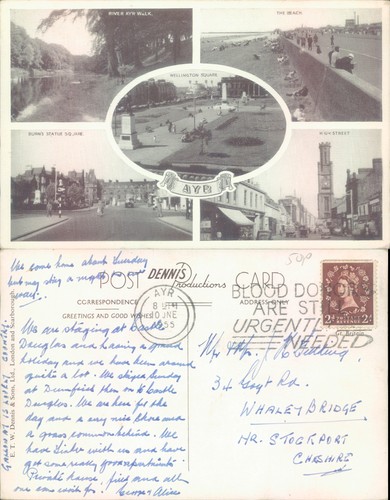 RIVER AYR WALK.
THE BEACH.
WELLINGTON SQUARE.
BURNS STATUE SQUARE.
HIGH STREET
AYR
POST
DENNIS
Productions
CARD
CORRESPONDENCE
ADDRESS ONLY
GREETINGS AND GOOD WISHES
E. T. W. Dennis & Sons, Ltd., London and Scarborough.
AYR
JNE
1955
BLOOD DO
ARE ST
URGENTLY
NEEDED
50p
We come home about Tuesday
but may stay a night on our
way.
We are staying at Castle
Douglas and having a grand
holiday and we have been around
quite a lot. We stayed Sunday
at Dumfries then on to Castle
Douglas. We are here for the
day and a very nice place and
a grass common behind. We
have Linber with us and have
got some really good
Private house, fires and all
one can wish for. George Alice
Mr Mrs J.
34 Goyt Rd.
WHALEY BRIDGE
NR. STOCKPORT
CHESHIRE